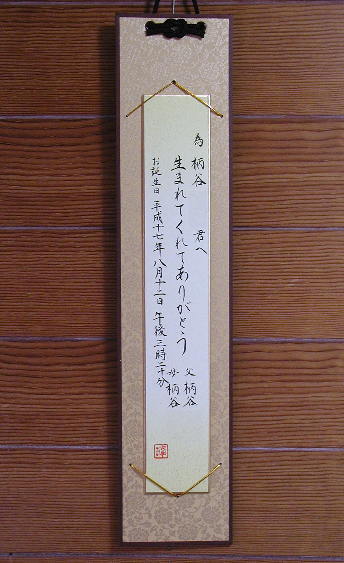 為 柄谷 君へ
生まれてくれてありがとう
父 柄谷
母 柄谷
お誕生日 平成十七年 八月十二日 午後三時二十分